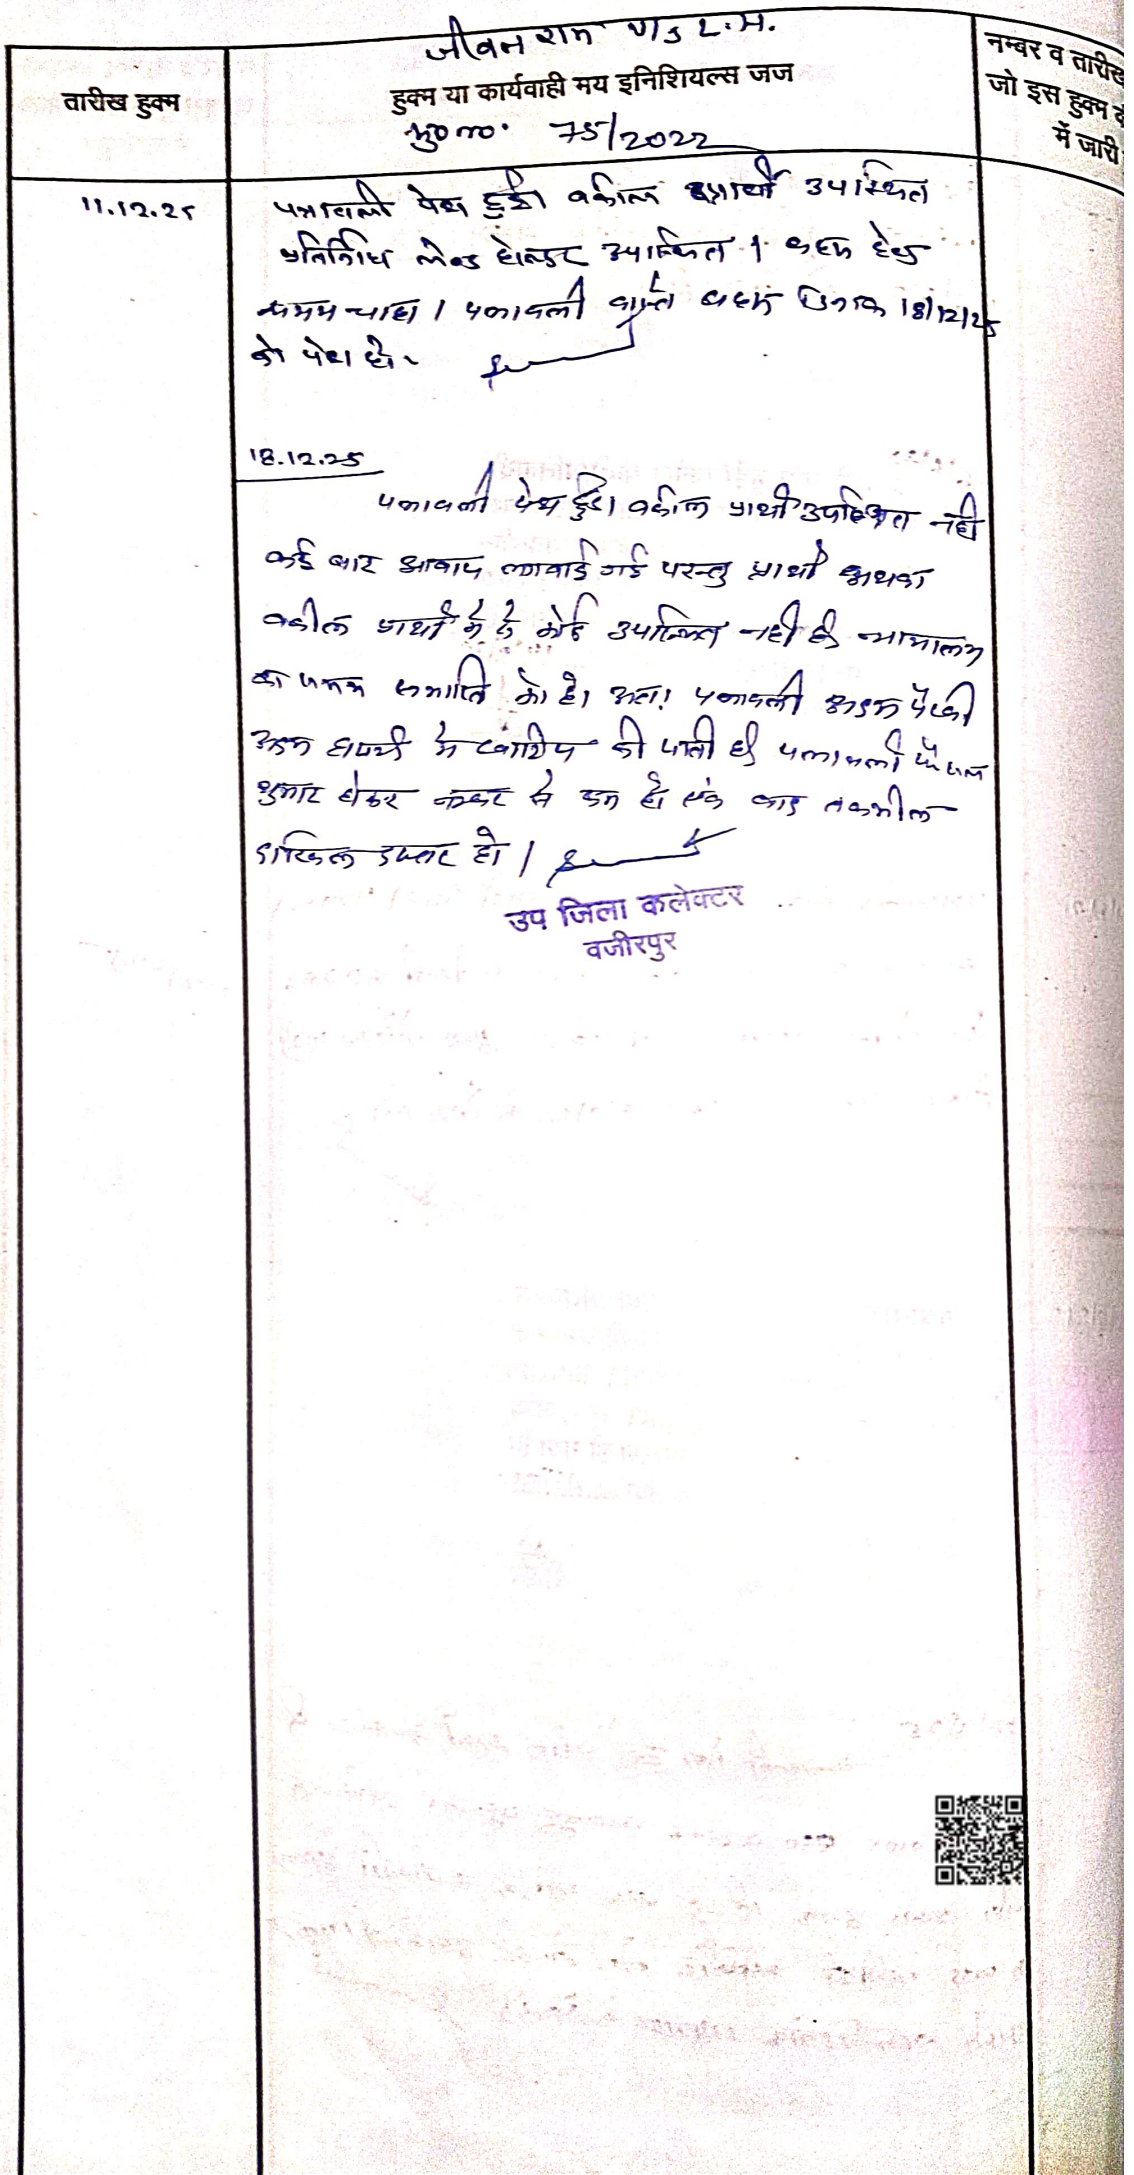 जीवन राम v/s L.H.
तारीख हुक्म
हुक्म या कार्यवाही मय इनिशियल्स जज
मु0न0. 75/2022
नम्बर व तारीख
जो इस हुक्म
में जारी
11.12.25
पत्रावली पेश हुई। वकील प्रार्थी उपस्थित
प्रतिनिधि लेण्ड होल्डर उपस्थित। बहस हेतु
समय चाहा। पत्रावली वास्ते बहस दिनांक 18/12/25
को पेश हो।
18.12.25
पत्रावली पेश हुई। वकील प्रार्थी उपस्थित नही
कई बार आवाज लगवाई गई परन्तु प्रार्थी अथवा
वकील प्रार्थी में से कोई उपस्थित नही है न्यायालय
का समय समाप्ति को है। अतः पत्रावली अदम पैरवी
अदम हाजरी में खारिज की जाती है पत्रावली फैसल
शुमार होकर नम्बर से कम हो एवं बाद तकमील
दाखिल दफ्तर हो।
उप जिला कलेक्टर
वजीरपुर